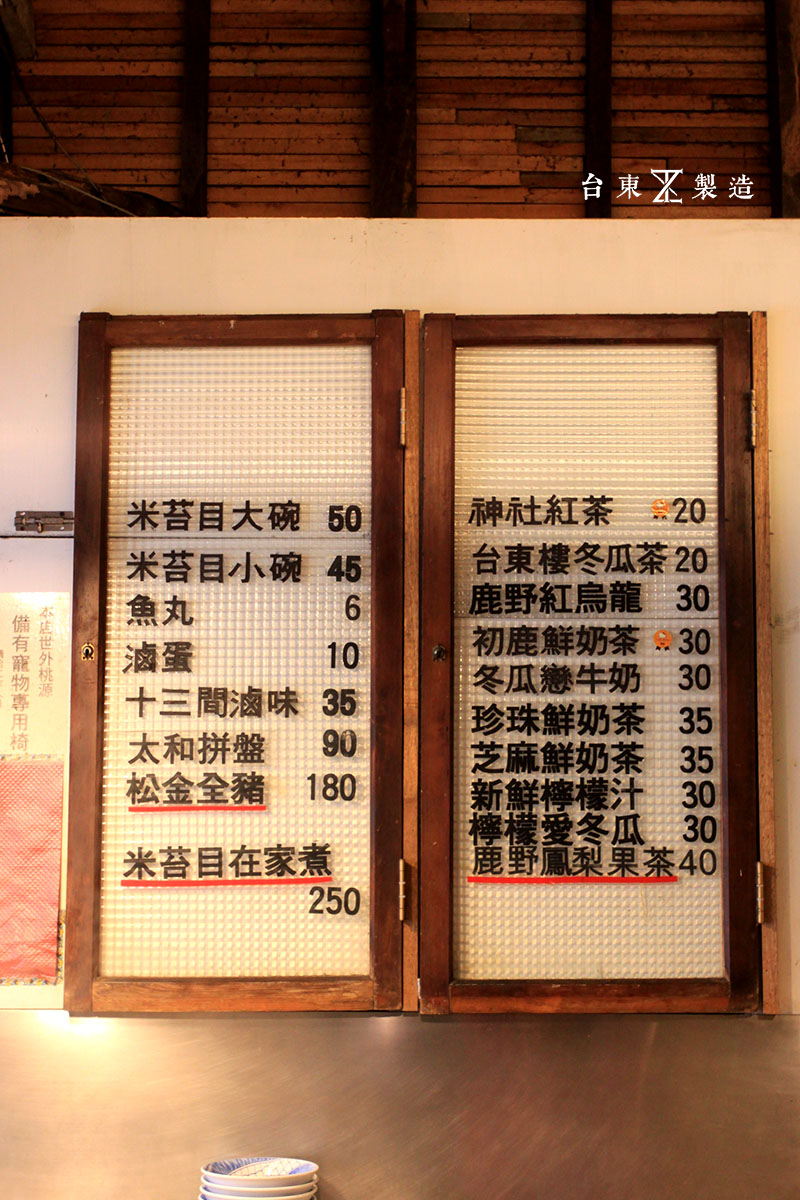 台東製造
米苔目大碗 50
米苔目小碗 45
魚丸 6
滷蛋 10
十三間滷味 35
太和拼盤 90
松金全豬 180
米苔目在家煮
250
神社紅茶 20
台東樓冬瓜茶 20
鹿野紅烏龍 30
初鹿鮮奶茶 30
冬瓜戀牛奶 30
珍珠鮮奶茶 35
芝麻鮮奶茶 35
新鮮檸檬汁 30
檸檬愛冬瓜 30
鹿野鳳梨果茶 40
本店世外桃源
備有寵物專用椅